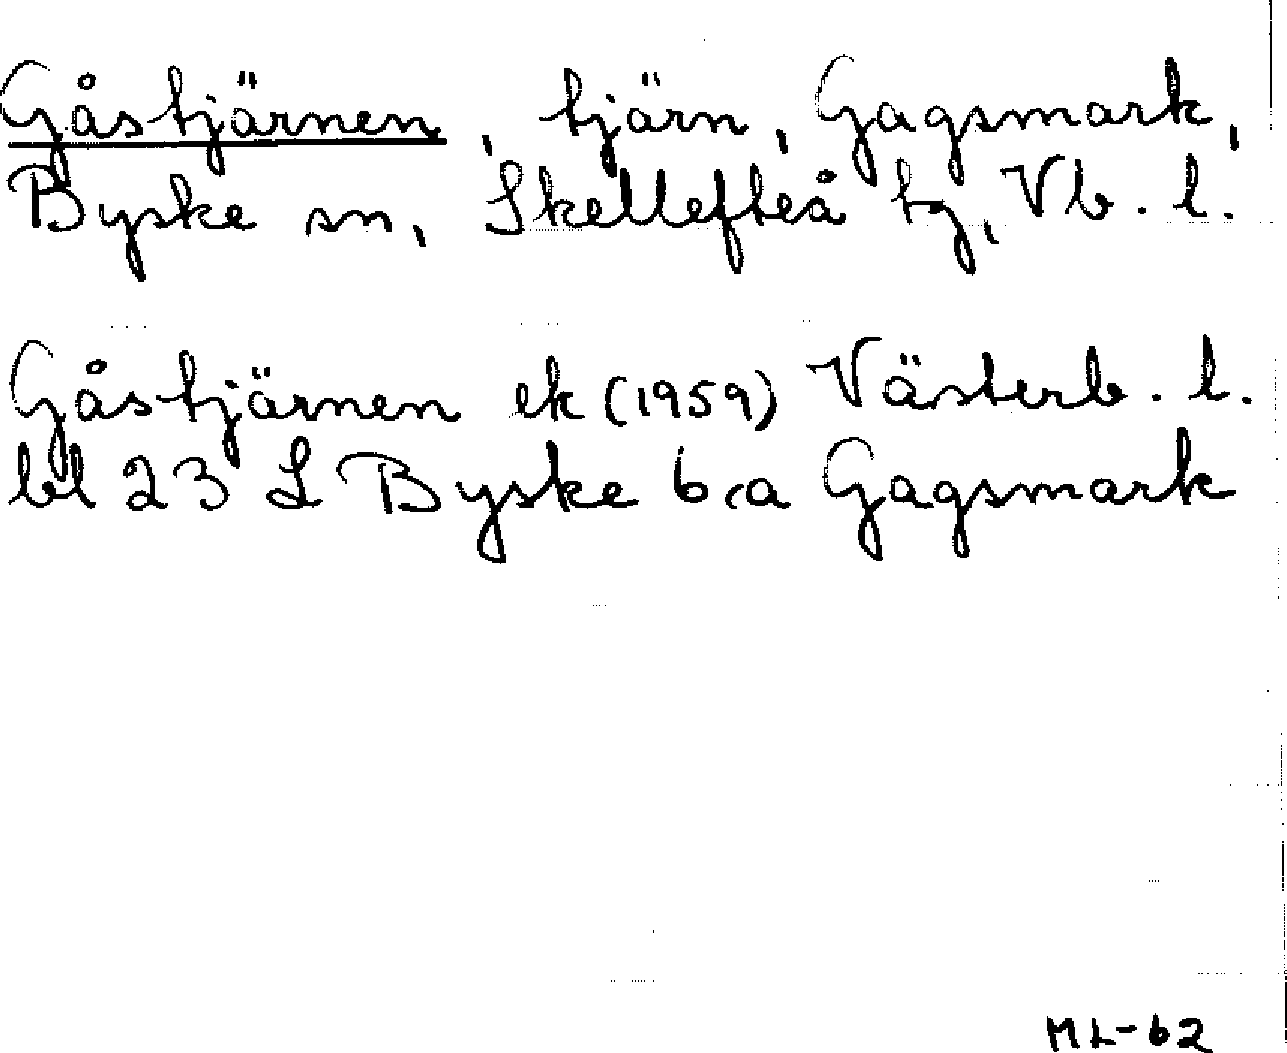 Gåstjärnen, tjärn, Gagsmark,
Byske sn, Skellefteå tg, Vb. l.
Gåstjärnen ek (1959) Västerb. l.
bl 23 L Byske 6ca Gagsmark
ML-62